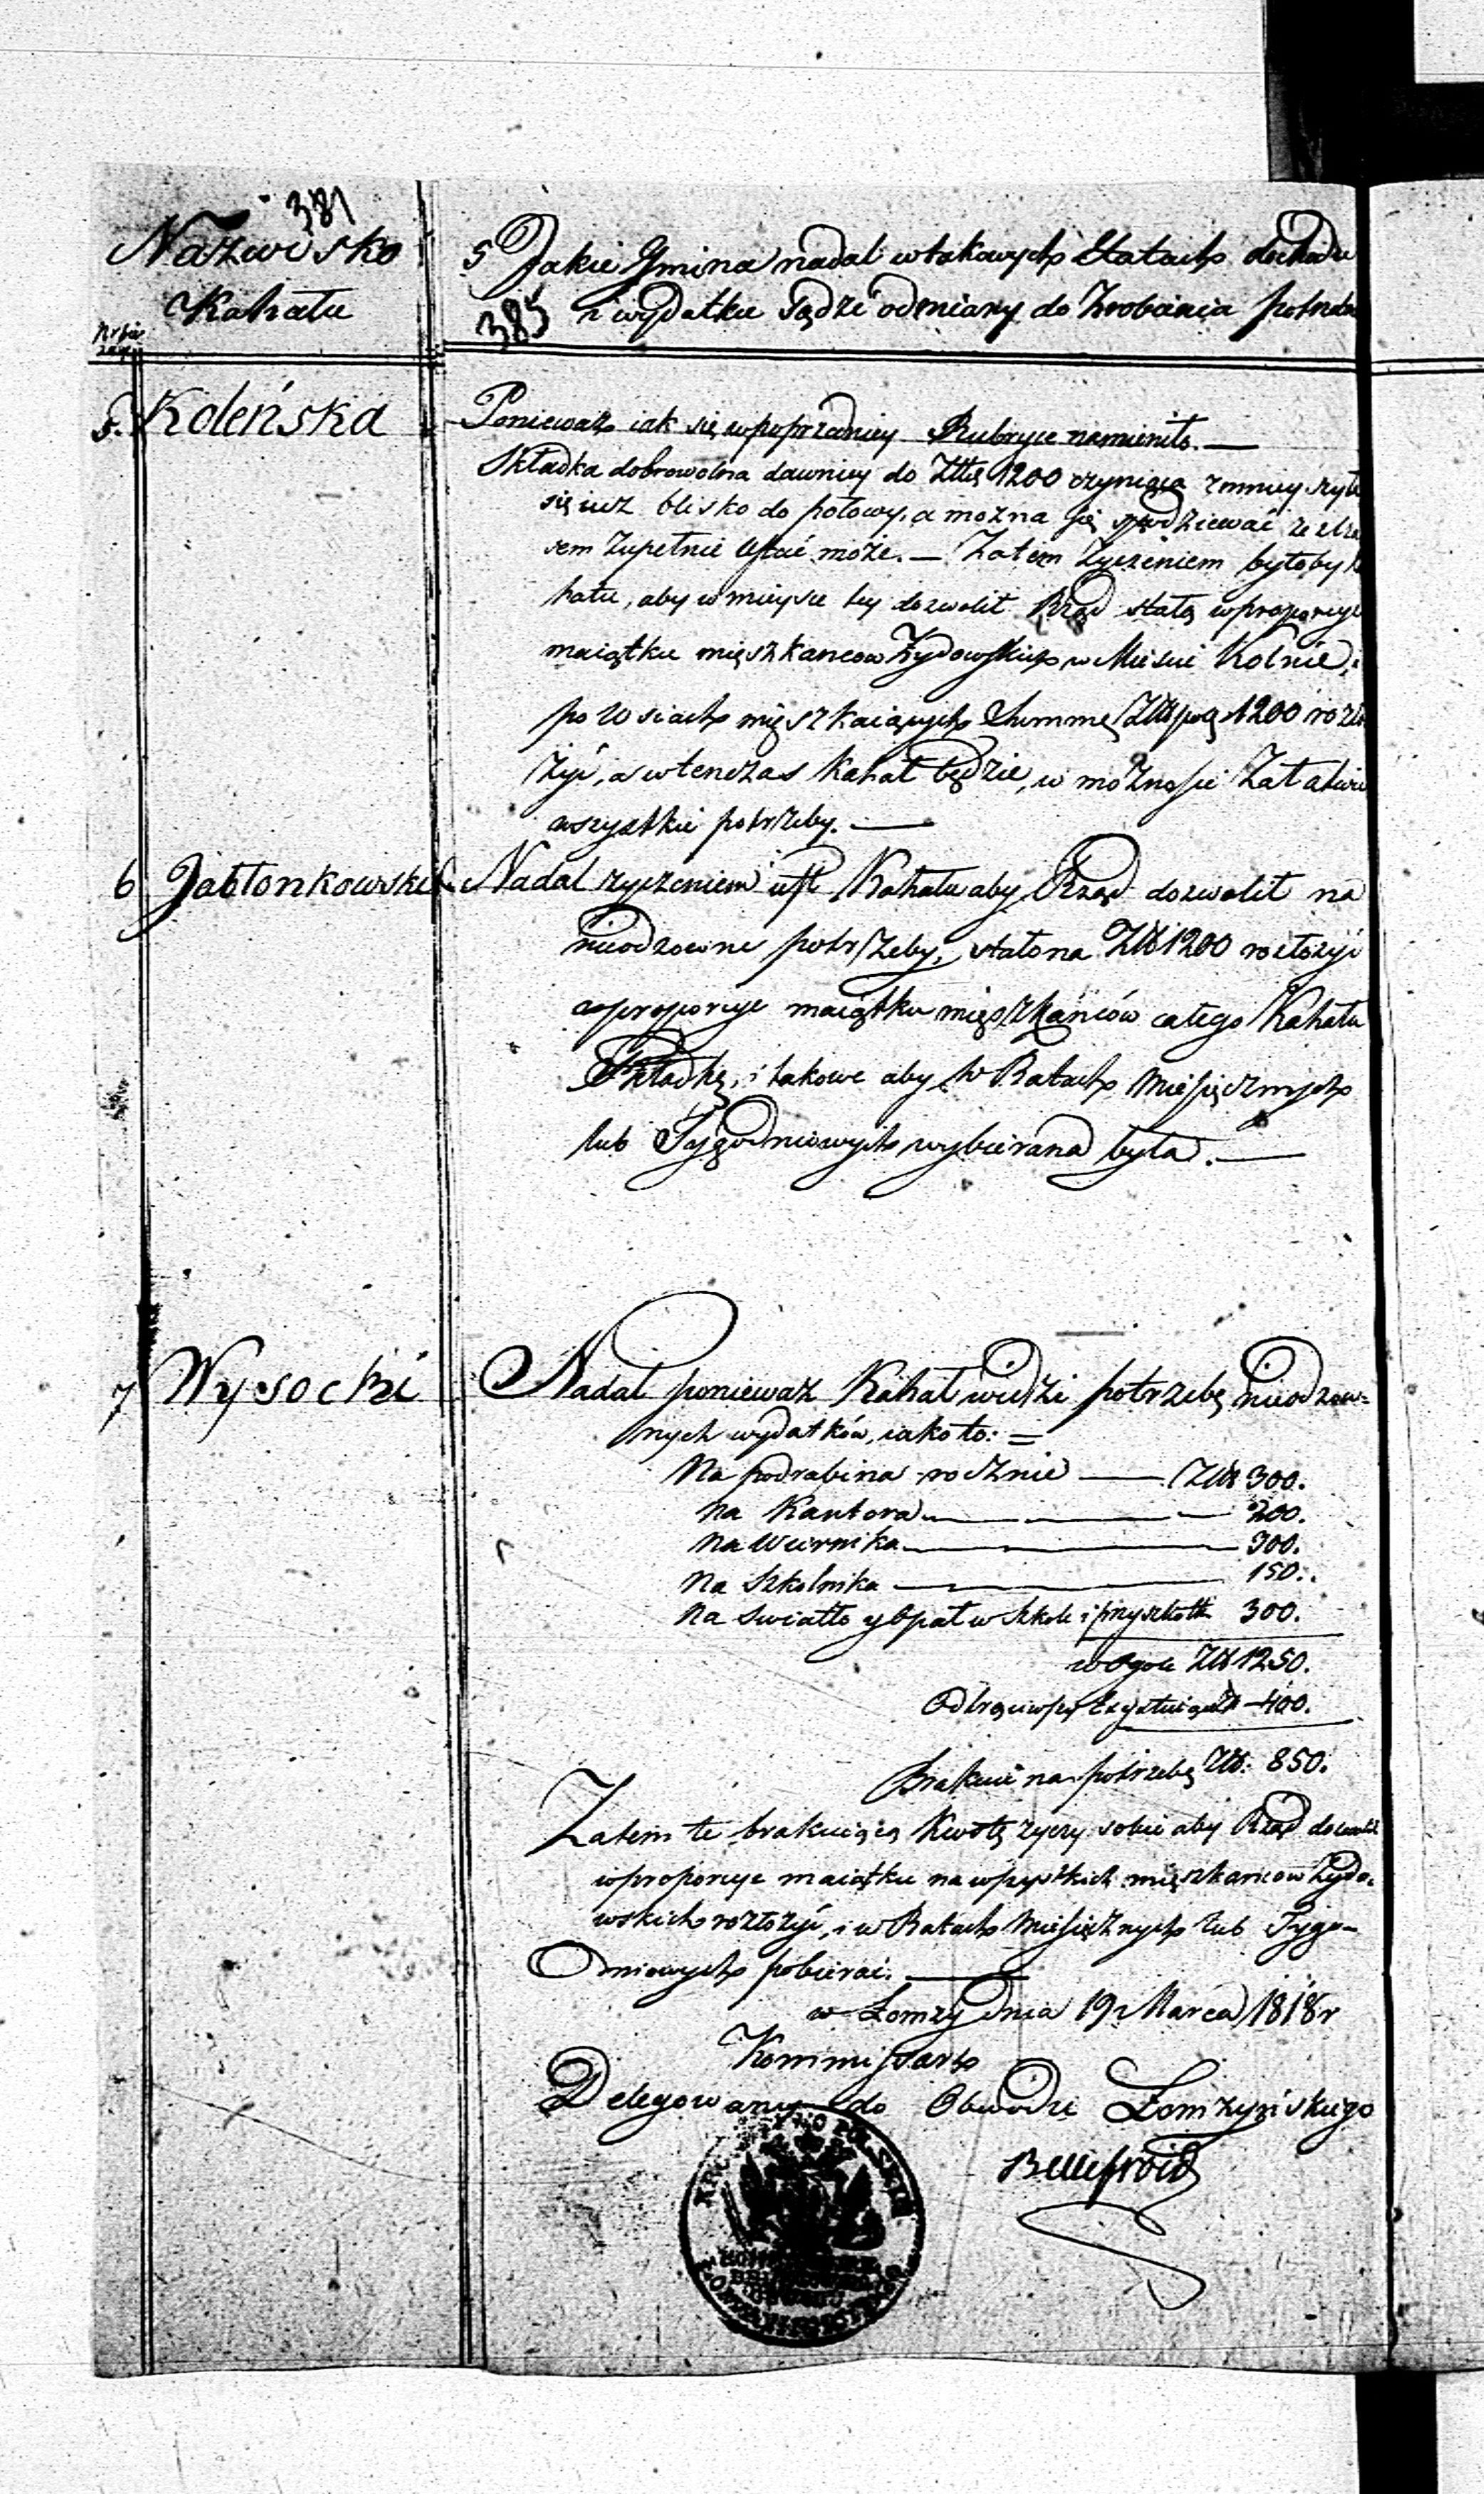 381
Nazwisko
Kahału
5 Jakie Gmina nadal w takowych Etatach dochodu
385 i wydatku sądzi odmiany do Zrobienia potrzebn
5. Koleńska
Ponieważ iak się w poprzedniey Rubryce namieniło. —
Składka dobrowolna dawniey do Złłt 1200 czyniąca zmniey szyła
się iuż blisko do połowy, a można się spodziewać że z cza
sem Zupełnie Ustać może. — Zatem Życzeniem byłoby Ka
hału, aby w mieysce tey dozwolił Rząd stałą w proporcye
maiątku mięszkancow Żydowskich w Mieście Kolnie, i
po Wsiach mięszkaiących Summę Złł pol 1200 rozło
żyć, a wtenczas Kahał będzie, w możności Załatwić
wszystkie potrzeby. —
6 Jabłonkowski
Nadal zyczeniem iest Kahału aby Rząd dozwolił na
nieodzowne potrzeby, stałą na Złł 1200 rozłożyć
w proporcye maiątku mięszkańców całego Kahału
Składkę, i takowe aby w Ratach Miesięcznych
lub Tygodniowych wybierana była. —
7 Wysocki
Nadal ponieważ Kahał widzi potrzebę nieodzow=
nych wydatków, iako to: =
Na podrabina rocznie — Złł 300.
na Kantora — 200.
Na Wiernika — 300.
Na Szkolnika — 150.
Na Swiatło y Opał w Szkole i przyszkołk 300.
w Ogole Złł 1250.
Odtrąciwszy — 400.
Brakuie na potrzebę Złł: 850.
Zatem te brakuiącą Kwotę zyczy sobie aby Rząd dozwolił
w proporcye maiątku na wszystkich mięszkancow Żydo-
wskich rozłożyć, i w Ratach Miesięcznych lub Tygo-
dniowych pobierać. —
w Łomzy dnia 19 Marca 1818 r
Kommissarz
Delegowany do Obwodu Łomzyńskiego
Bellefroid